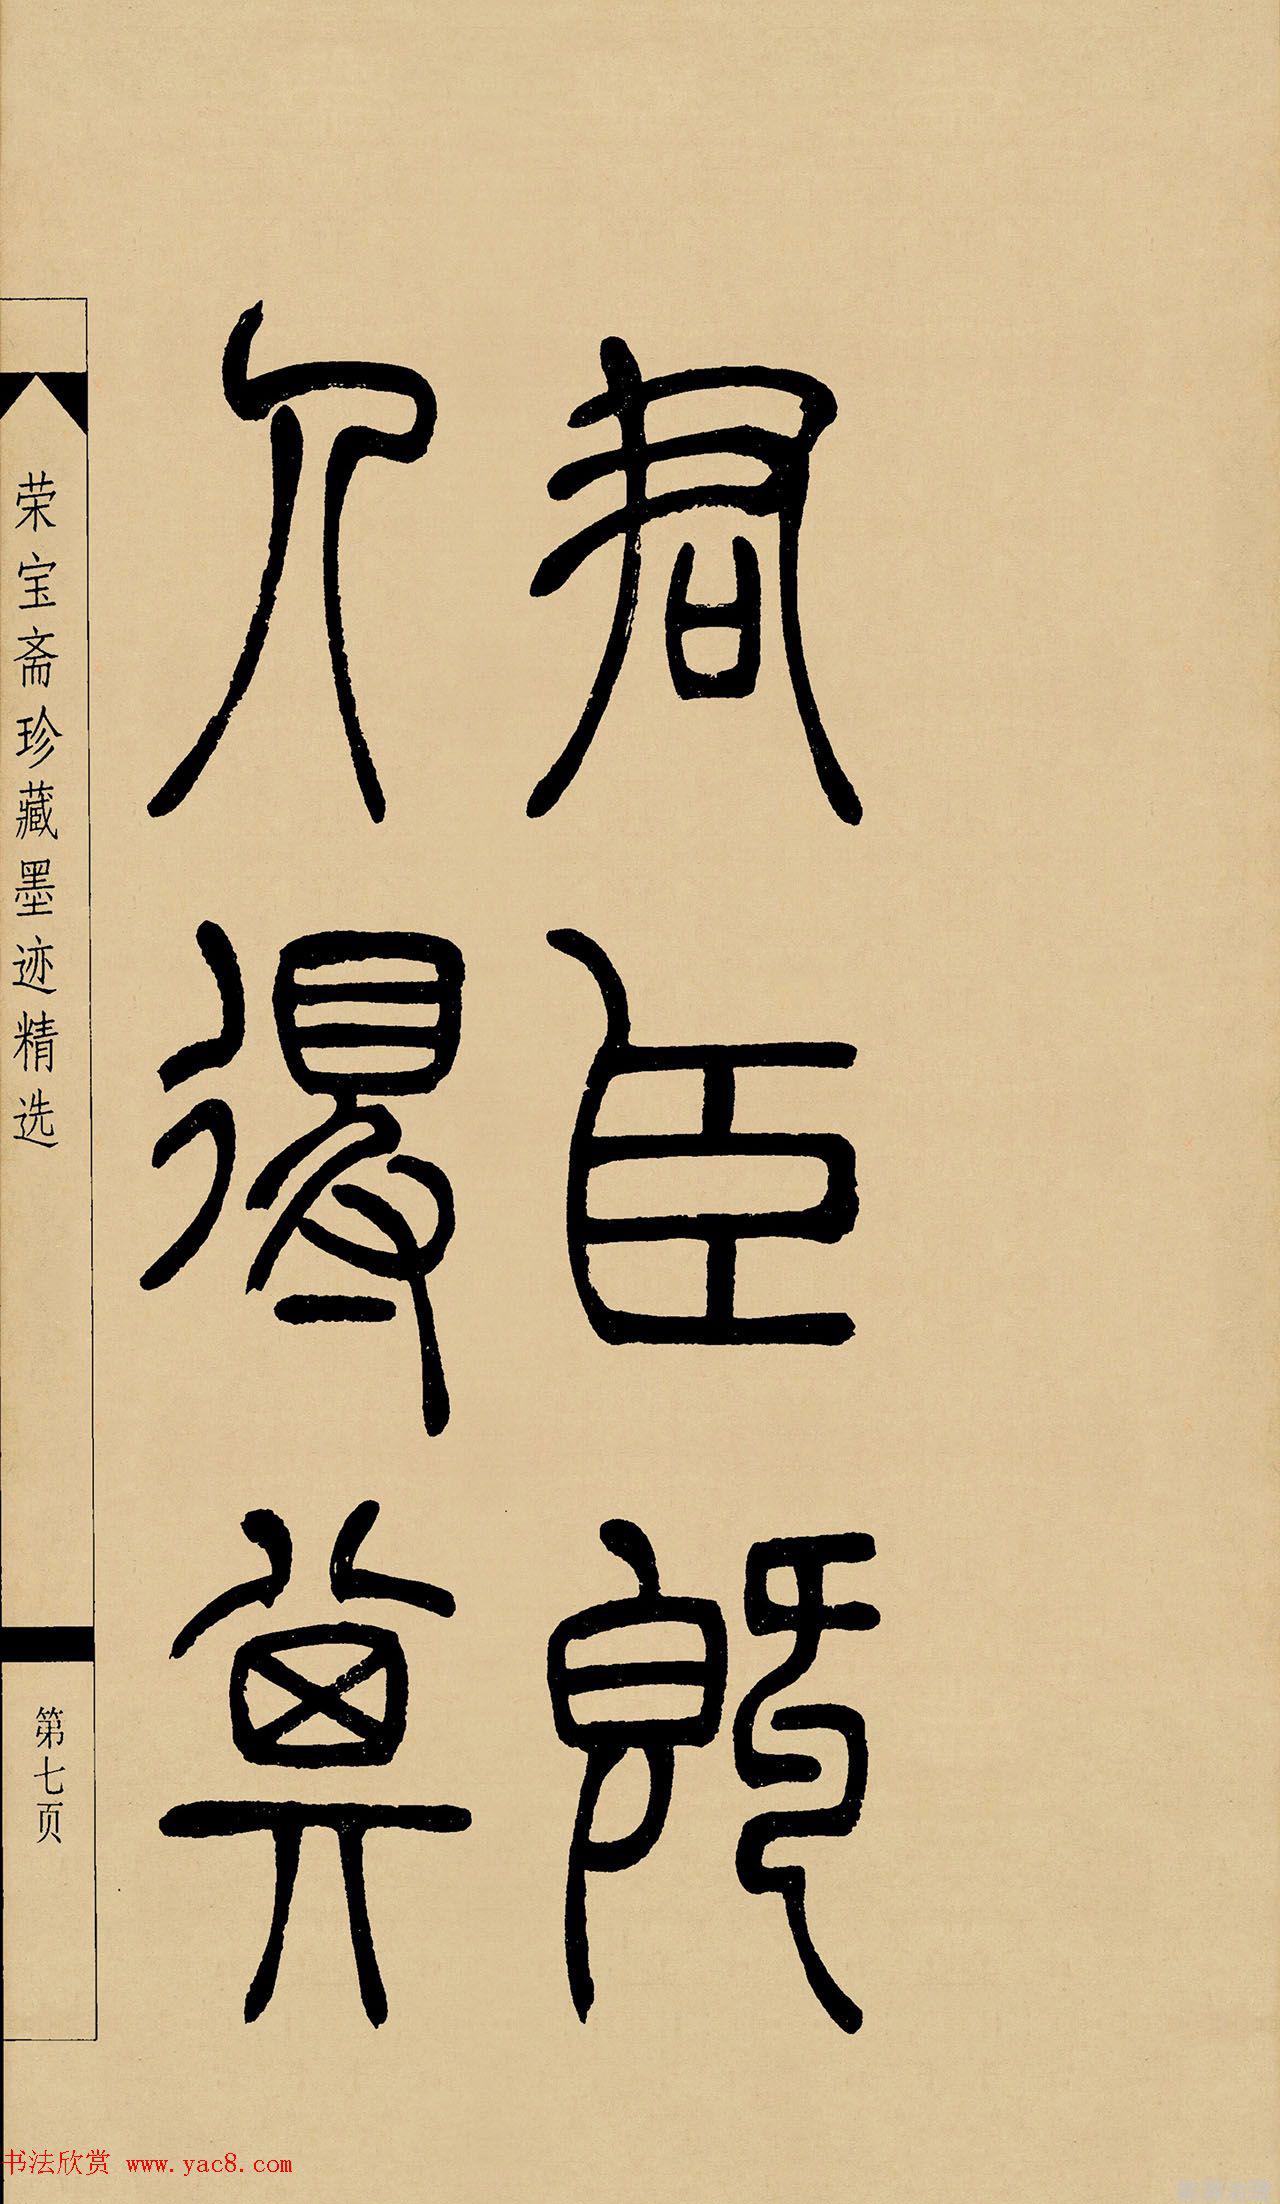 君臣既
得
荣宝斋珍藏墨迹精选
第七页
书法欣赏 www.yac8.com